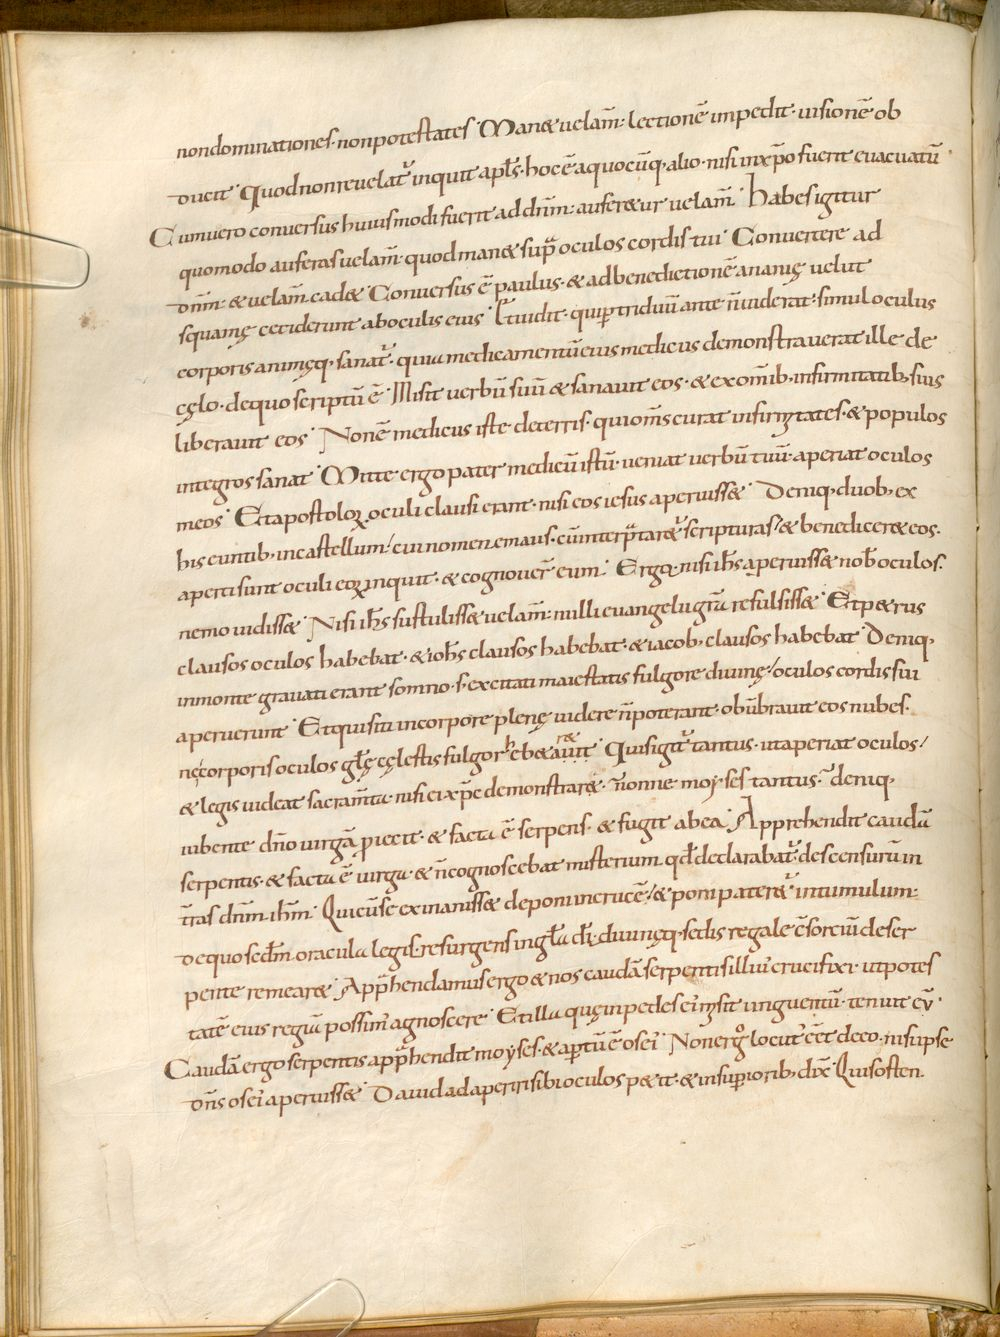 nondominationes· nonpotestates· Man&uelam̄· lectionē impedit· uisionē ob
ducit· Quod non reuelat᷒ inquit apl̄s· hoc ē aquocūq· alio· nisi inxp̄o fuerit euacuatū·
Cumuero conuersus huiusmodi fuerit ad dn̄m· aufer&ur uelam̄· habes igitur
quomodo auferas uelam̄· quod man& sup̄ oculos cordis tui· Conuertere ad
dn̄m· & uelam̄ cad&· Conuersus ē paulus· & ad benedictionē ananię uelut
squamę ceciderunt ab oculis eius· Et uidit· qui p triduū ante n̄ uiderat· simul oculus
corporis animęq· sanat᷒· quia medicamentū eius medicus demonstrauerat ille de
cęlo· de quo scriptū ē· Misit uerbū suū & sanauit eos· & ex om̄ib; infirmitatib; suis
liberauit eos· Non ē medicus iste deterris· qui om̄s curat infirmitates· & populos
integros sanat· Mitte ergo pater medicū istū· ueniat uerbū tuū· aperiat oculos
meos· Et apostoloꝝ oculi clausi erant· nisi eos iesus aperuiss&· Deniq· duob; ex
his euntib; incastellum/ cui nomen emaus· cū interp̄tar&᷒ scripturas/ & benedicer& eos·
aperti sunt oculi eoꝝ inquit· & cognouer̄ eum· Ergo nisi ih̄s aperuiss& nob̄ oculos·
nemo uidiss&· Nisi ih̄s sustuliss& uelam̄· nulli euangelii gr̄a refulsiss&· Et p&rus
clausos oculos habebat· & ioh̄s clausos habebat· & iacob; clausos habebat· Deniq·
inmonte grauati erant somno· s; excitati maiestatis fulgore diuinę/ oculos cordis sui
aperuerunt· Et quia siti incorpore plenę uidere n̄ poterant· obūbrauit eos nubes·
nę corporis oculos gl̄ę cęlestis fulgor heb&ar&· Quis igit᷒ tantus· ut aperiat oculos/
& legis uideat sacram̄ta· nisi ei xp̄c demonstrar&· n̄onne moyses tantus·? deniq·
iubente dn̄o uirgā piecit· & facta ē serpens· & fugit ab ea· Apprehendit caudā
serpentis· & facta ē uirga· & n̄ cognoscebat misterium· qd̄ declarabat᷒· descensurū in
tr̄as dn̄m ih̄m· Qui cū se exinaniss& deponi incrucē/ & poni pater&᷒ intumulum·
de quo sed̄m oracula legis· resurgens in gl̄a di· diuinęq· sedis regale c̄sorciū de ser
pente remear&· App̄hendamus ergo & nos caudā serpentis illius crucifixi· ut potes
tatē eius regiā possim᷒ agnoscere· Et illa quę in pedes ei᷒ misit unguentū· tenuit eū·
Caudā ergo serpentis app̄hendit moyses· & aptū ē os ei᷒· Non ergo locut᷒ eēt deco· nisi ipse
dn̄s os ei᷒ aperuiss&· Dauid ad aperiri sibi oculos p&it· & in supiorib; dix̄· Quis osten